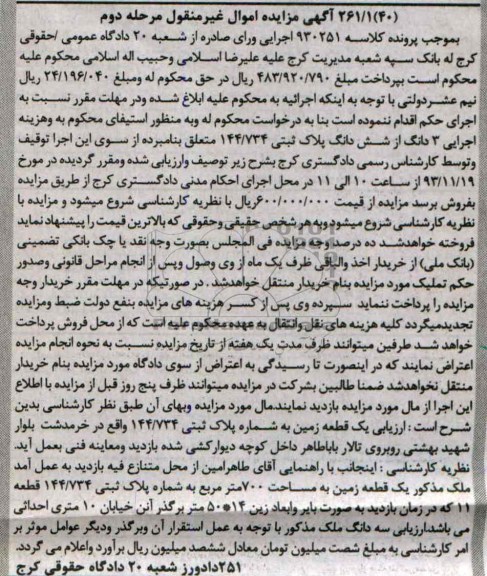 ۲۶۱/۱(۴۰) آگهی مزایده اموال غیرمنقول مرحله دوم
بموجب پرونده کلاسه ۹۳۰۲۵۱ اجرایی ورای صادره از شعبه ۲۰ دادگاه عمومی /حقوقی
کرج له بانک سپه شعبه مدیریت کرج علیه علیرضا اسلامی وحبیب اله اسلامی محکوم علیه
محکوم است بپرداخت مبلغ ۴۸۳/۹۲۰/۷۹۰ ریال در حق محکوم له ومبلغ ۲۴/۱۹۶/۰۴۰ ریال
نیم عشردولتی با توجه به اینکه اجرائیه به محکوم علیه ابلاغ شده ودر مهلت مقرر نسبت به
اجرای حکم اقدام ننموده است بنا به درخواست محکوم له وبه منظور استیفای محکوم به وهزینه
اجرایی ۳ دانگ از شش دانگ پلاک ثبتی ۱۴۴/۷۳۴ متعلق بنامبرده از سوی این اجرا توقیف
وتوسط کارشناس رسمی دادگستری کرج بشرح زیر توصیف وارزیابی شده ومقرر گردیده در مورخ
۹۳/۱۱/۱۹ از ساعت ۱۰ الی ۱۱ در محل اجرای احکام مدنی دادگستری کرج از طریق مزایده
بفروش برسد مزایده از قیمت ۶۰۰/۰۰۰/۰۰۰ریال با نظریه کارشناسی شروع میشود و مزایده با
نظریه کارشناسی شروع میشود وبه هرشخص حقیقی وحقوقی که بالاترین قیمت را پیشنهاد نماید
فروخته خواهدشد ده درصد وجه مزایده فی المجلس بصورت وجه نقد یا چک بانکی تضمینی
(بانک ملی) از خریدار اخذ والباقی ظرف یک ماه از وی وصول وپس از انجام مراحل قانونی وصدور
حکم تملیک مورد مزایده بنام خریدار منتقل خواهدشد. در صورتیکه در مهلت مقرر خریدار وجه
مزایده را پرداخت ننماید سپرده وی پس از کسر هزینه های مزایده بنفع دولت ضبط ومزایده
تجدیدمیگردد کلیه هزینه های نقل وانتقال به عهده محکوم علیه است که از محل فروش پرداخت
خواهد شد طرفین میتوانند ظرف مدت یک هفته از تاریخ مزایده نسبت به نحوه انجام مزایده
اعتراض نمایند که در اینصورت تا رسیدگی به اعتراض از سوی دادگاه مورد مزایده بنام خریدار
منتقل نخواهدشد ضمنا طالبین بشرکت در مزایده میتوانند ظرف پنج روز قبل از مزایده با اطلاع
این اجرا از مال مورد مزایده بازدید نمایند.مال مورد مزایده وبهای آن طبق نظر کارشناسی بدین
شرح است : ارزیابی یک قطعه زمین به شماره پلاک ثبتی ۱۴۴/۷۳۴ واقع در خرمدشت بلوار
شهید بهشتی روبروی تالار باباطاهر داخل کوچه دیوارکشی شده بازدید ومعاینه فنی بعمل آید.
نظریه کارشناسی : اینجانب با راهنمایی آقای طاهرامین از محل متنازع فیه بازدید به عمل آمد
ملک مذکور یک قطعه زمین به مساحت ۷۰۰متر مربع به شماره پلاک ثبتی ۱۴۴/۷۳۴ قطعه
۱۱ که در زمان بازدید به صورت بایر وابعاد زین ۱۴*۵۰ متر برگذر آنن خیابان ۱۰ متری احداثی
می باشدارزیابی سه دانگ ملک مذکور با توجه به عمل استقرار آن وبرگذر ودیگر عوامل موثر بر
امر کارشناسی به مبلغ شصت میلیون تومان معادل ششصد میلیون ریال برآورد واعلام می گردد.
۲۵۱دادورز شعبه ۲۰ دادگاه حقوقی کرج